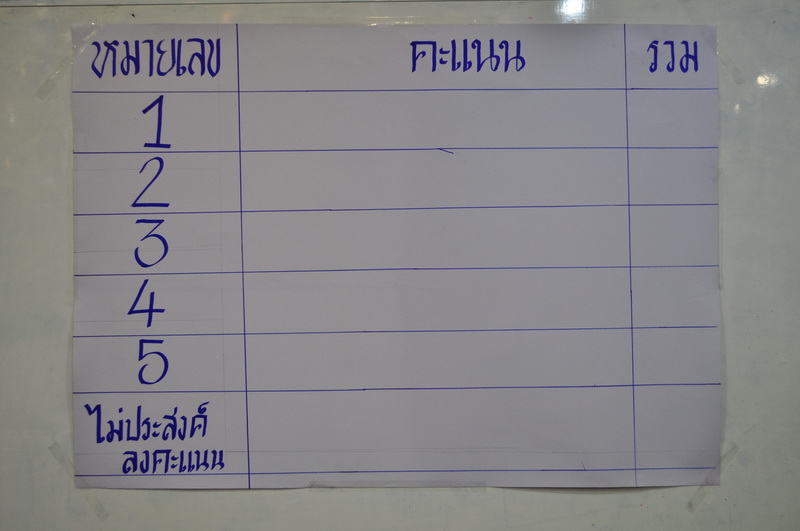 หมายเลข คะแนน รวม
1
2
3
4
5
ไม่ประสงค์
ลงคะแนน